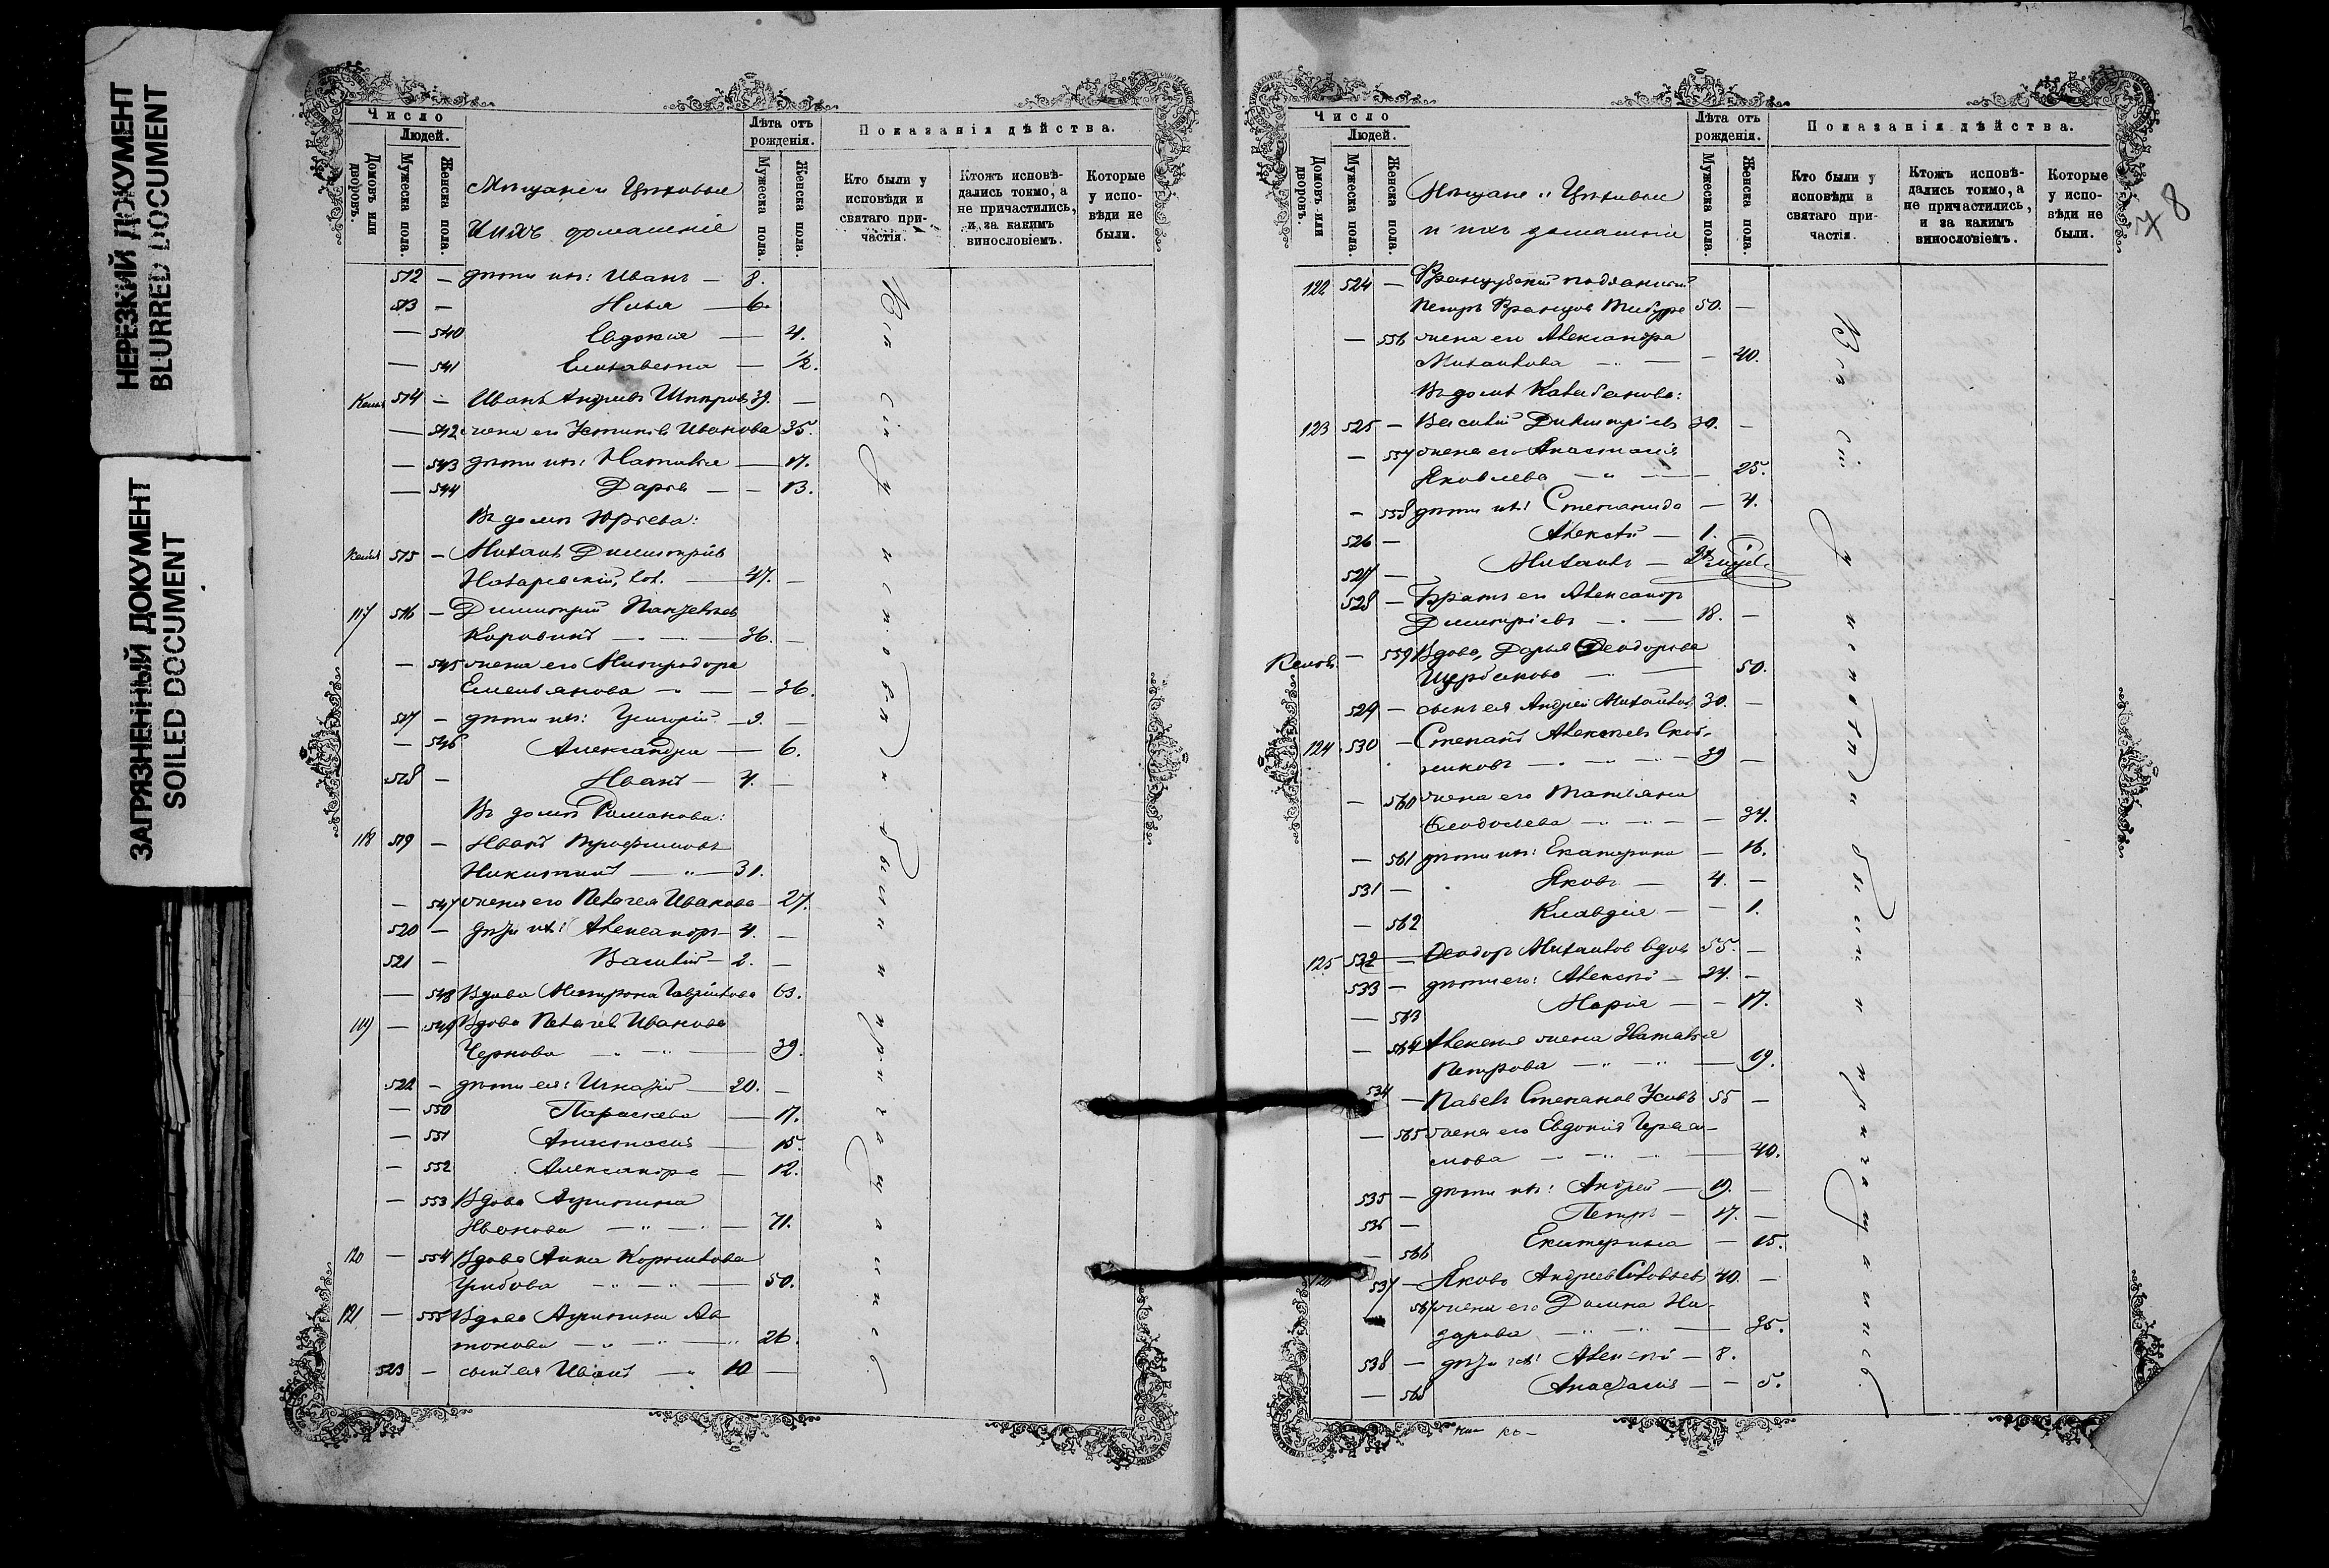 НЕРЕЗКИЙ ДОКУМЕНТ
BLURRED DOCUMENT
ЗАГРЯЗНЕННЫЙ ДОКУМЕНТ
SOILED DOCUMENT
Число
Людей.
Домовъ или дворовъ.
Мужеска пола.
Женска пола.
Мѣщане и Цеховые
и ихъ домашніе
Лѣта отъ рожденія.
Мужеска пола.
Женска пола.
Показанія дѣйства.
Кто были у исповѣди и святаго причастія.
Ктожъ исповѣдались токмо, а не причастились, и за какимъ винословіемъ.
Которые у исповѣди не были.
512 — дѣти ихъ: Иванъ — 8.
513 — Илья — 6.
— 540 Евдокія — 4.
— 541 Елисавета — 1/2.
514 — Иванъ Андреевъ 39. —
— 542 жена его Устинія Иванова 35.
— 543 дѣти ихъ: Наталья — 17.
— 544 Дарья — — 13.
Въ домѣ Юрьева:
515 — Михаилъ Димитріевъ
47. —
117 516 — Димитрій
Коровинъ — 36. —
— 545 жена его Митродора
Емельянова — — 36.
517 — дѣти ихъ: Григорій — 9. —
— 546 Александра — 6.
518 — Иванъ — 4. —
Въ домѣ Романова:
118 519 — Иванъ Трофимовъ
Никитинъ — 31.
— 547 жена его Пелагея Иванова — 27.
520 — дѣти ихъ: Александръ — 4. —
521 — Василій — 2. —
— 548 Вдова Матрона Гаврилова 63.
119 — 549 Вдова Пелагея Иванова
Чернова — 39.
522 — дѣти ея: Игнатій — 20. —
— 550 Параскева — 17.
— 551 Анастасія — 15.
— 552 Александра — 12.
— 553 Вдова Агрипина
Иванова — 71.
120 — 554 Вдова Анна Корнилова
50.
121 — 555 Вдова Агрипина
26.
523 — сынъ ея Иванъ — 10 —
Всѣ сіи у исповѣди были и причащались
Число
Людей.
Домовъ или дворовъ.
Мужеска пола.
Женска пола.
Мѣщане и Цеховые
и ихъ домашніе
Лѣта отъ рожденія.
Мужеска пола.
Женска пола.
Показанія дѣйства.
Кто были у исповѣди и святаго причастія.
Ктожъ исповѣдались токмо, а не причастились, и за какимъ винословіемъ.
Которые у исповѣди не были.
8
122 524 — Французский подданный
Петръ Францовъ 50. —
— 556 жена его Александра
Михайлова — — 40.
Въ домѣ
123 525 — Василій Димитріевъ 30. —
— 557 жена его Анастасія
Яковлева — 25.
— 558 дѣти ихъ: Степанида — 4.
526 — Алексѣй — 1.
527 — Михаилъ —
528 — Братъ его Александръ
Димитріевъ — 18. —
— 559 Вдова, Дарья Ѳеодорова
Щербакова — 50.
529 — сынъ ея Андрей Михайловъ 30. —
124 530 — Степанъ Алексѣевъ
39 —
— 560 жена его Татьяна
— 34.
— 561 дѣти ихъ: Екатерина — 16.
531 — Яковъ — 4. —
— 562 Клавдія — — 1.
125 532 — Ѳеодоръ Михайловъ вдовъ 55. —
533 — дѣти его: Алексѣй — 24. —
— 563 Марія — — 17.
— 564 Алексѣя жена Наталья
Петрова — 19.
534 — Павелъ Степановъ Усовъ 55 —
— 565 жена его Евдокія Гераси-
мова — 40.
535 — дѣти ихъ: Андрей — 19. —
536 — Петръ — 17. —
— 566 Екатерина — 15.
537 — Яковъ Андреевъ Соловьевъ 40. —
567 жена его Домна На-
зарова — 35.
538 — дѣти ихъ: Алексѣй — 8.
— 568 Анастасія — — 5.
Всѣ сіи у исповѣди были и причащались